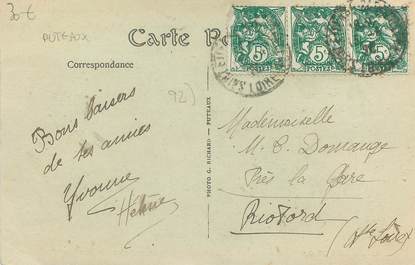 30€
PUTEAUX
Carte Po
Correspondance
92)
5c
POSTES
5c
POSTES
5c
POSTES
Bons baisers
de tes amies
Yvonne
Hélène
PHOTO G. RICHARD - PUTEAUX
Mademoiselle
M. C. Domange
Près la Gare
Riotord
(Hte Loire)